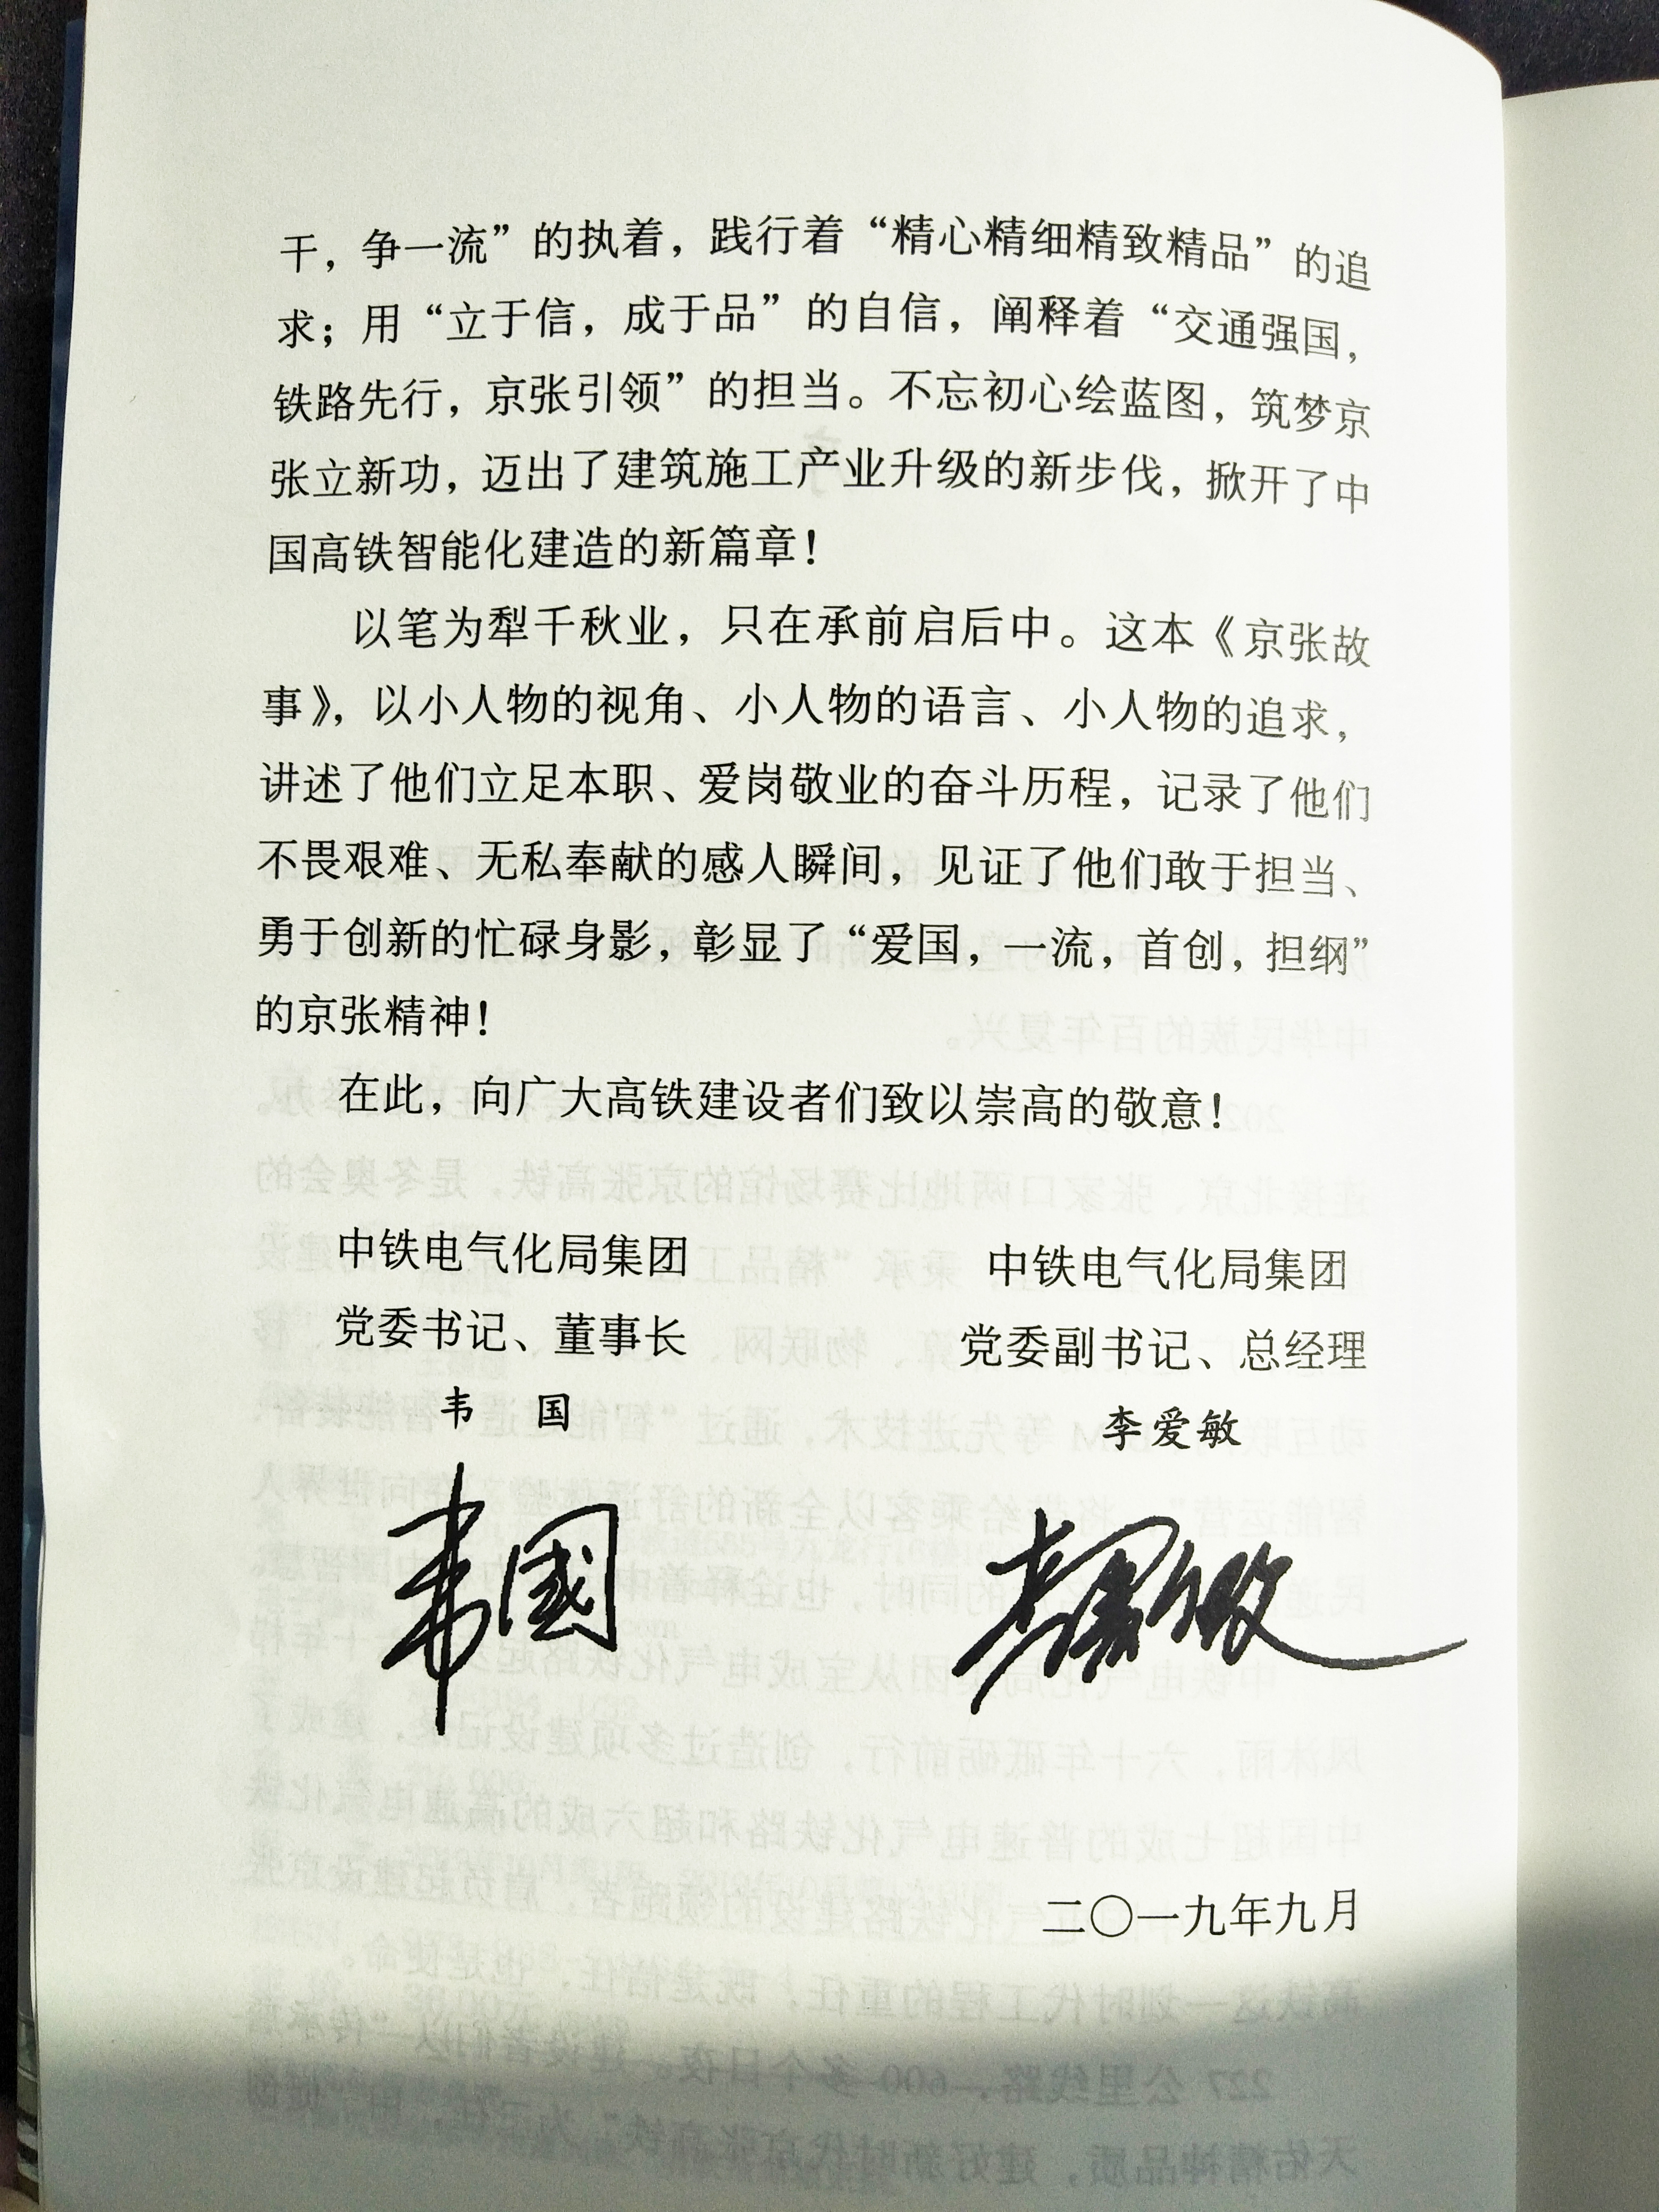 干，争一流”的执着，践行着“精心精细精致精品”的追
求；用“立于信，成于品”的自信，阐释着“交通强国，
铁路先行，京张引领”的担当。不忘初心绘蓝图，筑梦京
张立新功，迈出了建筑施工产业升级的新步伐，掀开了中
国高铁智能化建造的新篇章！
以笔为犁千秋业，只在承前启后中。这本《京张故
事》，以小人物的视角、小人物的语言、小人物的追求，
讲述了他们立足本职、爱岗敬业的奋斗历程，记录了他们
不畏艰难、无私奉献的感人瞬间，见证了他们敢于担当、
勇于创新的忙碌身影，彰显了“爱国，一流，首创，担纲”
的京张精神！
在此，向广大高铁建设者们致以崇高的敬意！
中铁电气化局集团
党委书记、董事长
韦 国
韦國
中铁电气化局集团
党委副书记、总经理
李爱敏
李爱敏
二〇一九年九月